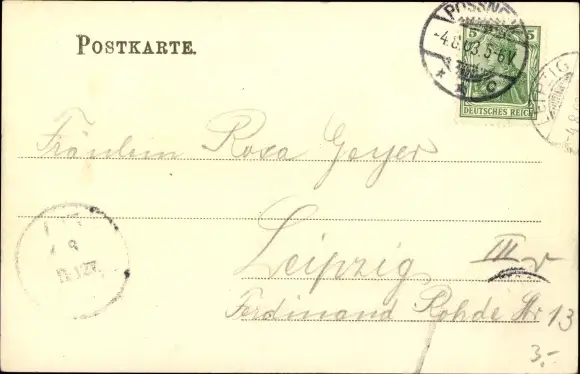 POSTKARTE.
PÖSSNE
-4.8.03 5-6V.
* * c
5 5
DEUTSCHES REICH
LEIPZIG
-4.8.
Fräulein Rosa Geyer
Leipzig III
Ferdinand Rohde Str 13
3,-